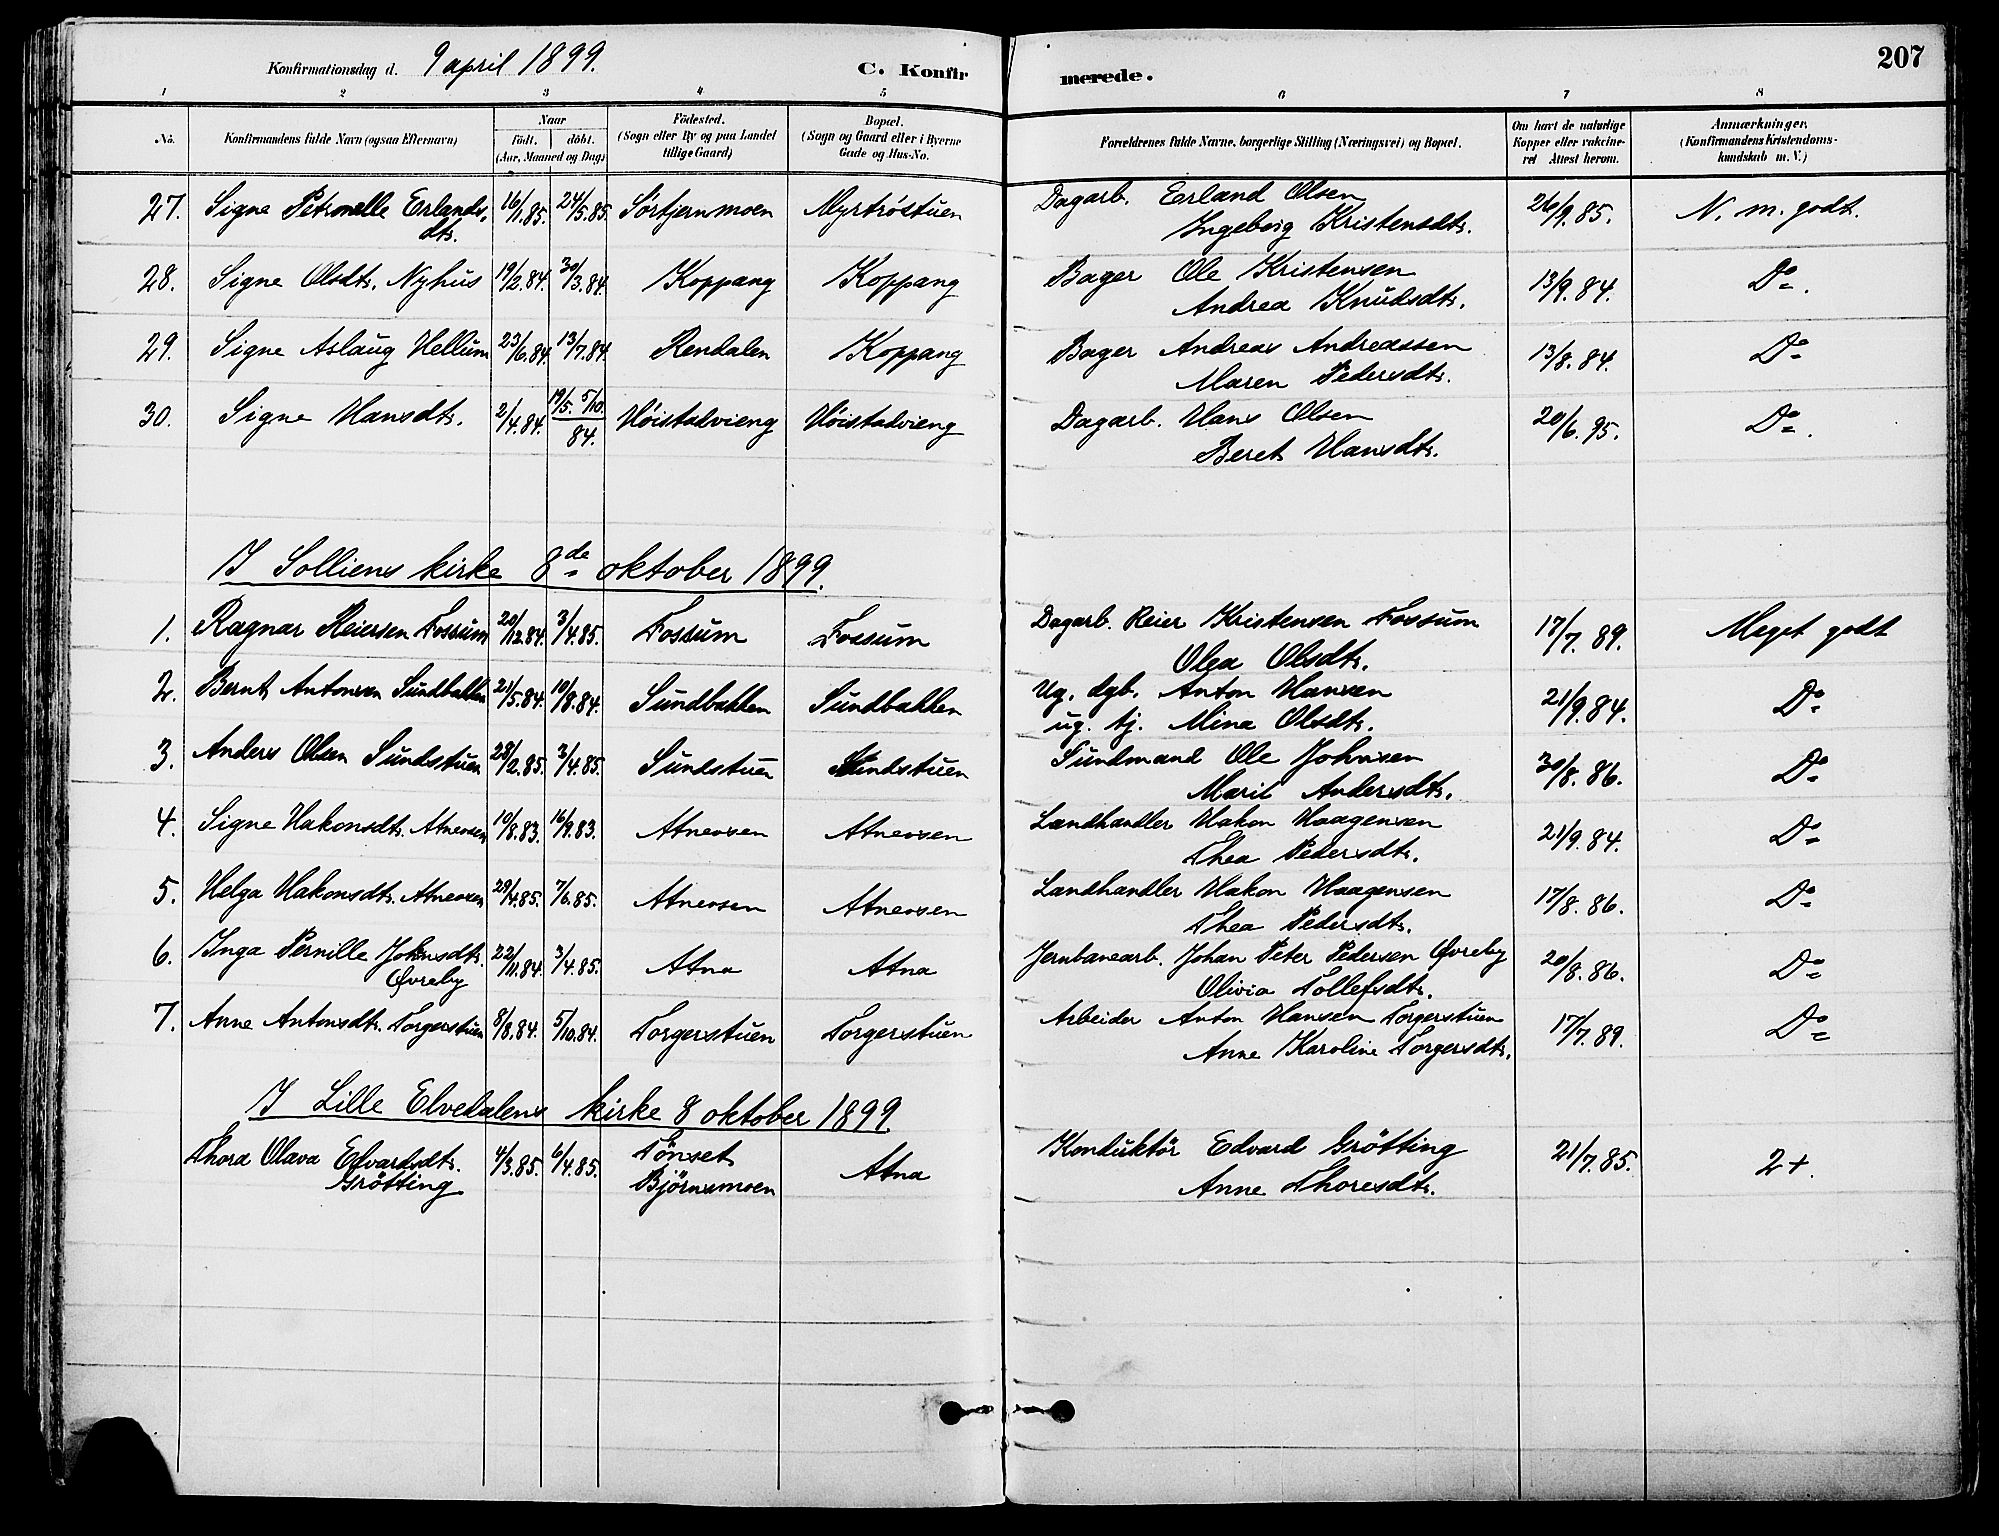 Konfirmationsdag d. 9 april 1899. C. Konfirmerede. 207
1 2 3 4 5 6 7 8
No. Konfirmandens fulde Navn (ogsaa Efternavn) Naar födt. döbt. (Aar, Maaned og Dag) Födested. (Sogn eller By og paa Landet tillige Gaard) Bopæl. (Sogn og Gaard eller i Byerne Gade og Hus-No. Forældrenes fulde Navne, borgerlige Stilling (Næringsvei) og Bopæl. Om havt de naturlige Kopper eller vaccineret Attest herom. Anmærkninger. (Konfirmandens Kristendomskundskab m. V.)
27. Signe Petronelle Erlandsdtr. 16/11.85. 24/5.85. Sörtjernmoen Myrtröstuen Dagarb. Erland Olsen
Ingeborg Kristensdtr. 26/9.85. N. m. godt.
28. Signe Olsdtr. Nyhus 19/2.84. 30/3.84. Koppang Koppang Bager Ole Kristensen
Andrea Knudsdtr. 13/9.84. Do.
29. Signe Aslaug Hellum 23/6.84. 13/7.84. Rendalen Koppang Bager Andreas Andreassen
Maren Pedersdtr. 13/8.84. Do
30. Signe Hansdtr. 2/4.84. 19/5. 5/10. 84. Höistadvieng Höistadvieng Dagarb. Hans Olsen
Beret Hansdtr. 20/6.95. Do.
I Solliens kirke 8de oktober 1899.
1. Ragnar Reiersen Fossum 20/12.84. 3/4.85. Fossum Fossum Dagarb. Reier Kristensen Fossum
Olea Olsdtr. 17/7.89. Meget godt
2. Bernt Antonsen Sundbakken 21/5.84. 10/8.84. Sundbakken Sundbakken Ug. dgb. Anton Hansen
ug. tj. Mina Olsdtr. 21/9.84. Do
3. Anders Olsen Sundstuen 28/2.85. 3/4.85. Sundstuen Sundstuen Sundmand Ole Johnsen
Marit Andersdtr. 30/8.86. Do
4. Signe Hakonsdtr. Atneosen 10/8.83. 16/9.83. Atneosen Atneosen Landhandler Hakon Haagensen
Thea Pedersdtr. 21/9.84. Do
5. Helga Hakonsdtr. Atneosen 29/4.85. 7/6.85. Atneosen Atneosen Landhandler Hakon Haagensen
Thea Pedersdtr. 17/8.86. Do
6. Inga Pernille Johnsdtr. Øvreby 22/11.84. 3/4.85. Atna Atna Jernbanearb. Johan Peter Pedersen Øvreby
Olivia Tollefsdtr. 20/8.86. Do
7. Anne Antonsdtr. Torgerstuen 8/8.84. 5/10.84. Torgerstuen Torgerstuen Arbeider Anton Hansen Torgerstuen
Anne Karoline Torgersdtr. 17/7.89. Do
I Lille Elvedalens kirke 8 oktober 1899.
Thora Olava Edvardsdtr. Grötting 4/3.85. 6/4.85. Tönset Björnsmoen Atna Konduktör Edvard Grötting
Anne Thoresdtr. 21/7.85. 2+.